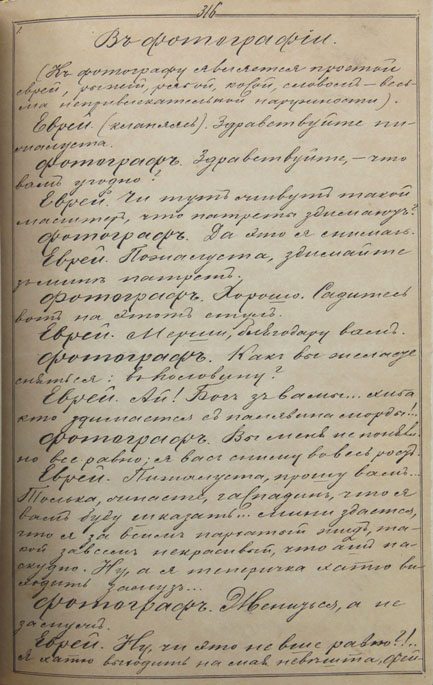 316
Въ фотографіи.
(Къ фотографу является простой
еврей, рыжій, рябой, косой, словомъ – весь-
ма непривлекательной наружности).
Еврей. (кланяясь). Здравствуйте пи-
жалуста.
Фотографъ. Здравствуйте, – что
вамъ угодно?
Еврей. Чи тутъ живутъ такой
мастеръ, что патреты здимаютъ?
Фотографъ. Да это я снимаю.
Еврей. Пожалуста, здимайте
зъ минъ патретъ.
Фотографъ. Хорошо. Садитесь
вотъ на этотъ стулъ.
Еврей. Мерши, благодару вамъ.
Фотографъ. Какъ вы желаете
сняться: въ половину?
Еврей. Ай! Богъ зъ вамы... хиба
кто здимается съ палявина морды...
Фотографъ. Вы меня не поняли
но все равно; я васъ сниму во весь ростъ.
Еврей. Пижалуста, прошу вамъ...
Толька, гаспадинъ, что я
вамъ буду сказать... мини здается,
что я за всимъ такой
завсемъ некрасивый, что
Ну, а я теперичка хатю ви-
ходить замузъ...
Фотографъ. Жениться, а не
замужъ.
Еврей. Ну, чи это не все равно?!..
Я хатю выходить на мая невѣшта,